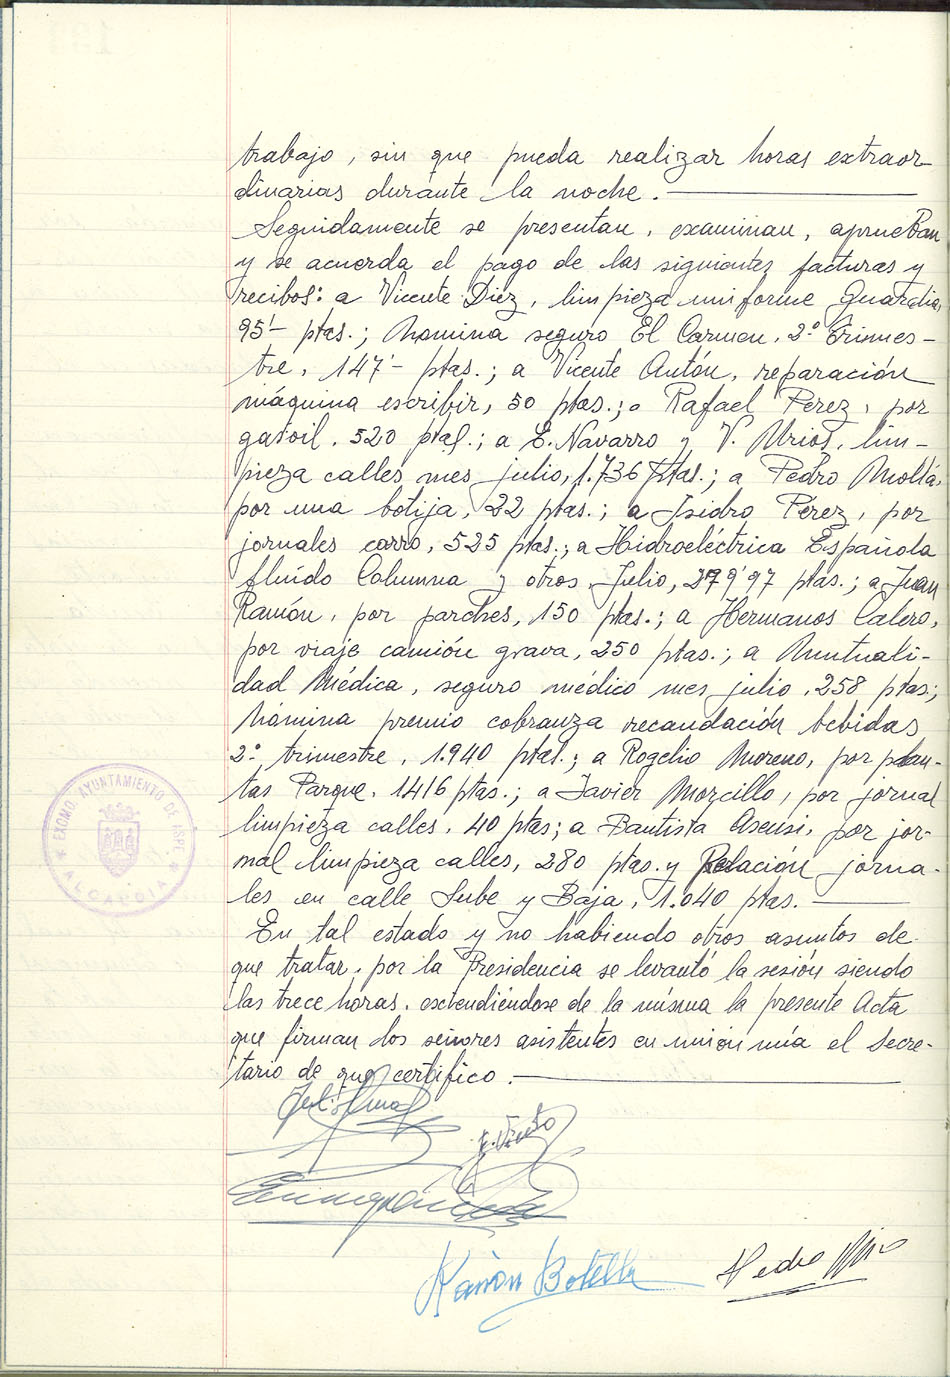 trabajo, sin que pueda realizar horas extraor
dinarias durante la noche.
Seguidamente se presentan, examinan, aprueban
y se acuerda el pago de las siguientes facturas y
recibos: a Vicente Diez, limpieza uniforme Guardia,
95'- ptas.; Nómina seguro El Carmen, 2º Trimes-
tre, 147'- ptas.; a Vicente Antón, reparación
máquina escribir, 50 ptas.; a Rafael Perez, por
gasoil, 520 ptas.; a E. Navarro y V. Urios, lim-
pieza calles mes julio, 1.736 Ptas.; a Pedro Mollá,
por una botija, 22 ptas.; a Isidro Pérez, por
jornales carro, 525 ptas.; a Hidroeléctrica Española
fluído Columna y otros Julio, 279'97 ptas.; a Juan
Ramón, por parches, 150 ptas.; a Hermanos Calero,
por viaje camión grava, 250 ptas.; a Mutuali-
dad Médica, seguro médico mes julio, 258 ptas;
Nómina premio cobranza recaudación bebidas
2º trimestre, 1.940 ptas.; a Rogelio Moreno, por plan-
tas Parque, 1416 ptas.; a Javier Morcillo, por jornal
limpieza calles, 40 ptas; a Bautista Asensi, por jor-
nal limpieza calles, 280 ptas. y Relación jorna-
les en calle Sube y Baja, 1.040 ptas.
En tal estado y no habiendo otros asuntos de
que tratar, por la Presidencia se levantó la sesión siendo
las trece horas, extendiéndose de la misma la presente Acta
que firman los señores asistentes en unión mía el Secre-
tario de que certifico.
Ramón Botella
Pedro
EXCMO. AYUNTAMIENTO DE ASPE
ALCALDIA